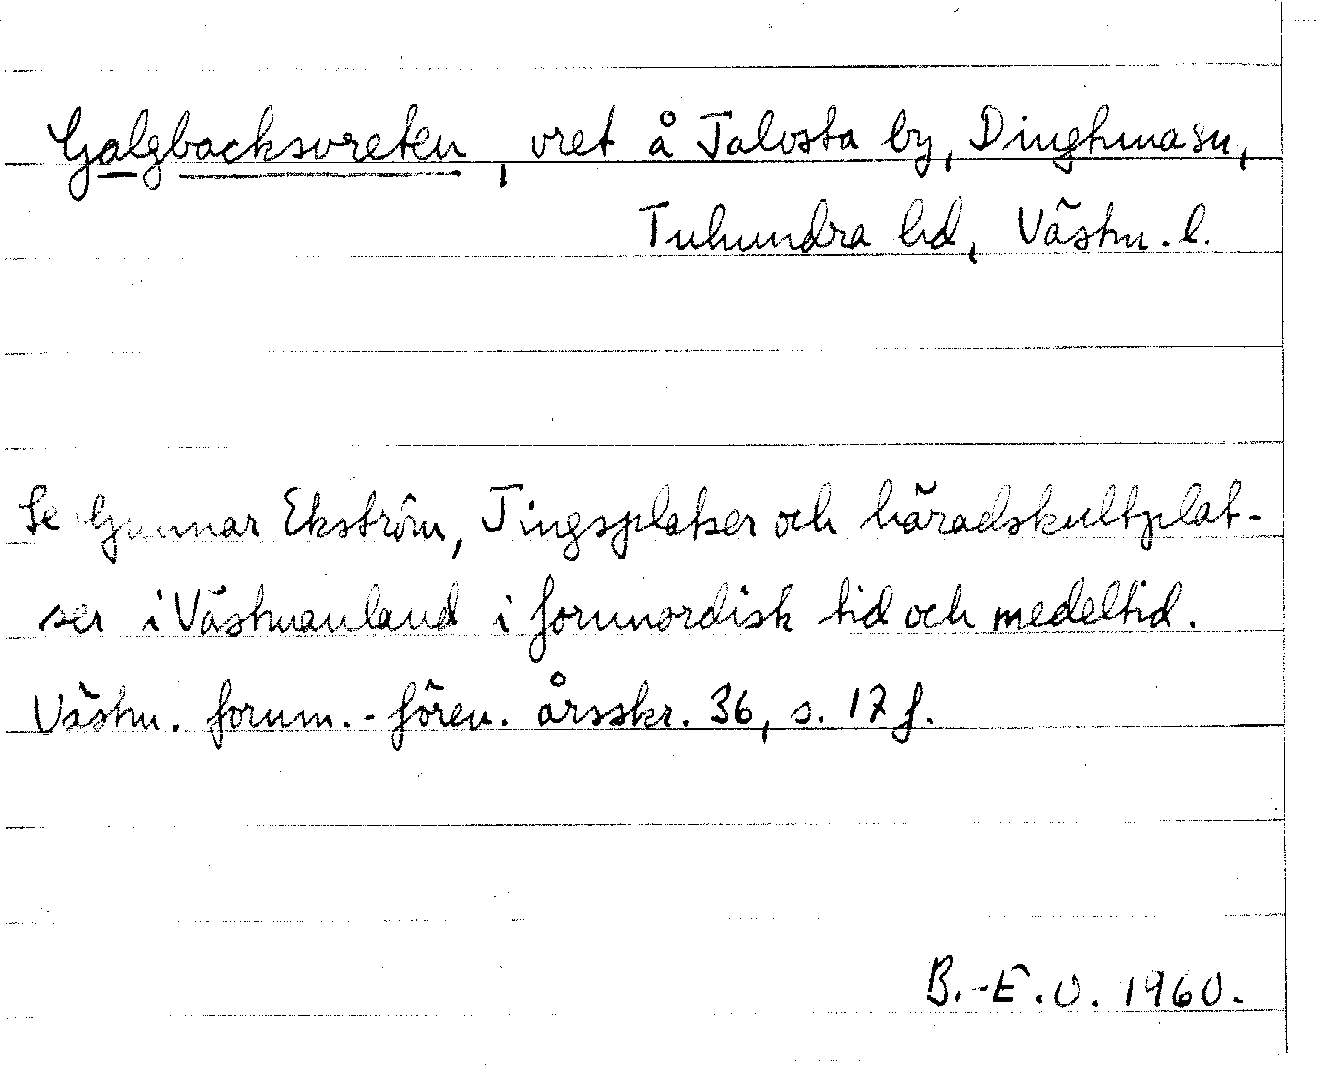 Galgbacksvreten, vret å Talvsta by, Dingtuna sn,
Tuhundra hd, Västm. l.
Se Gunnar Ekström, Tingsplatser och häradskultplat-
ser i Västmanland i fornnordisk tid och medeltid.
Västm. fornm.-fören. årsskr. 36, s. 17 f.
B.-E.O. 1960.